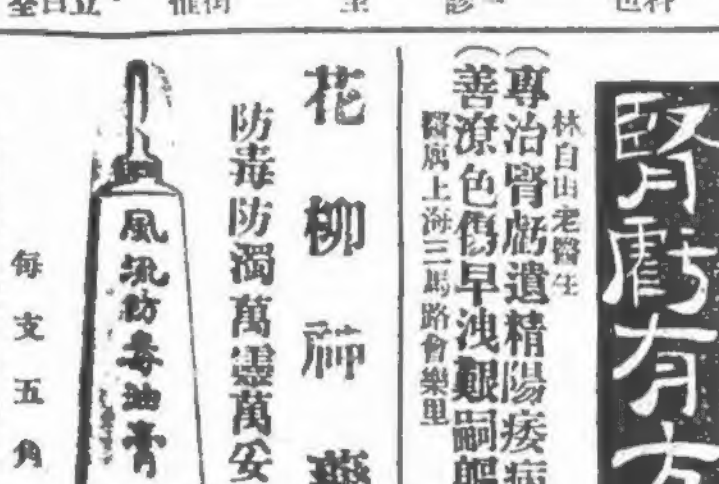 腎虧有方
林自由老醫生
（專治腎虧遺精陽痿病
（善療色傷早洩艱嗣
醫寓上海三馬路會樂里
花柳神藥
防毒防濁萬靈萬安
風流防毒油膏
每支五角